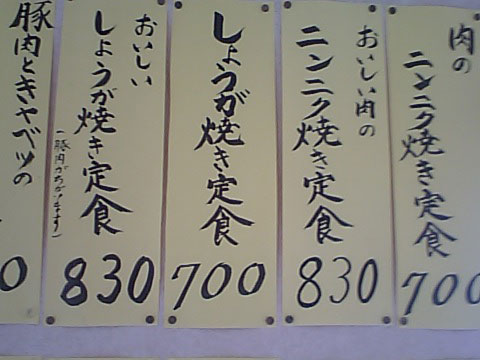 肉の
ニンニク焼き定食
700
おいしい肉の
ニンニク焼き定食
830
しょうが焼き定食
700
おいしい
しょうが焼き定食
(豚肉がちがいます)
830
豚肉とキャベツの
0